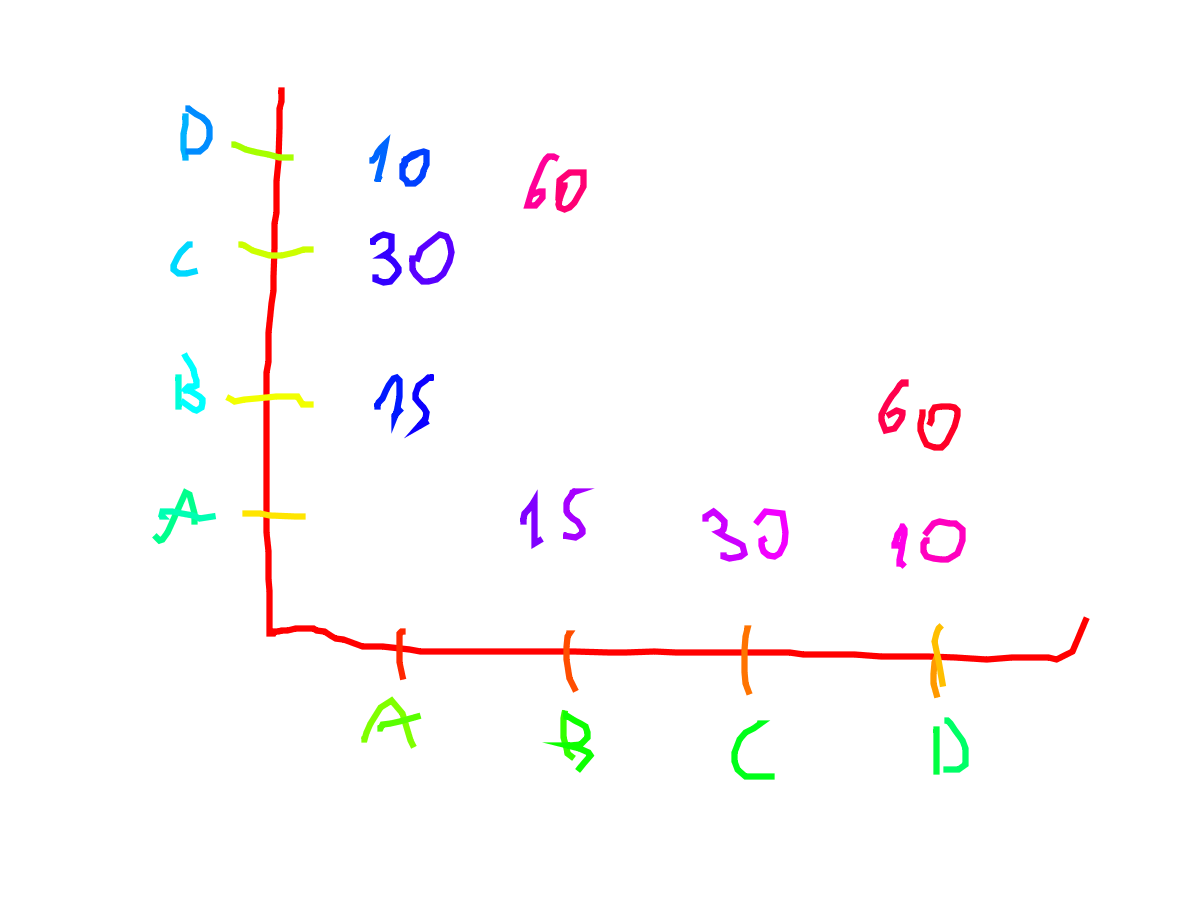 D 10 60
C 30
B 15 60
A 15 30 10
A B C D